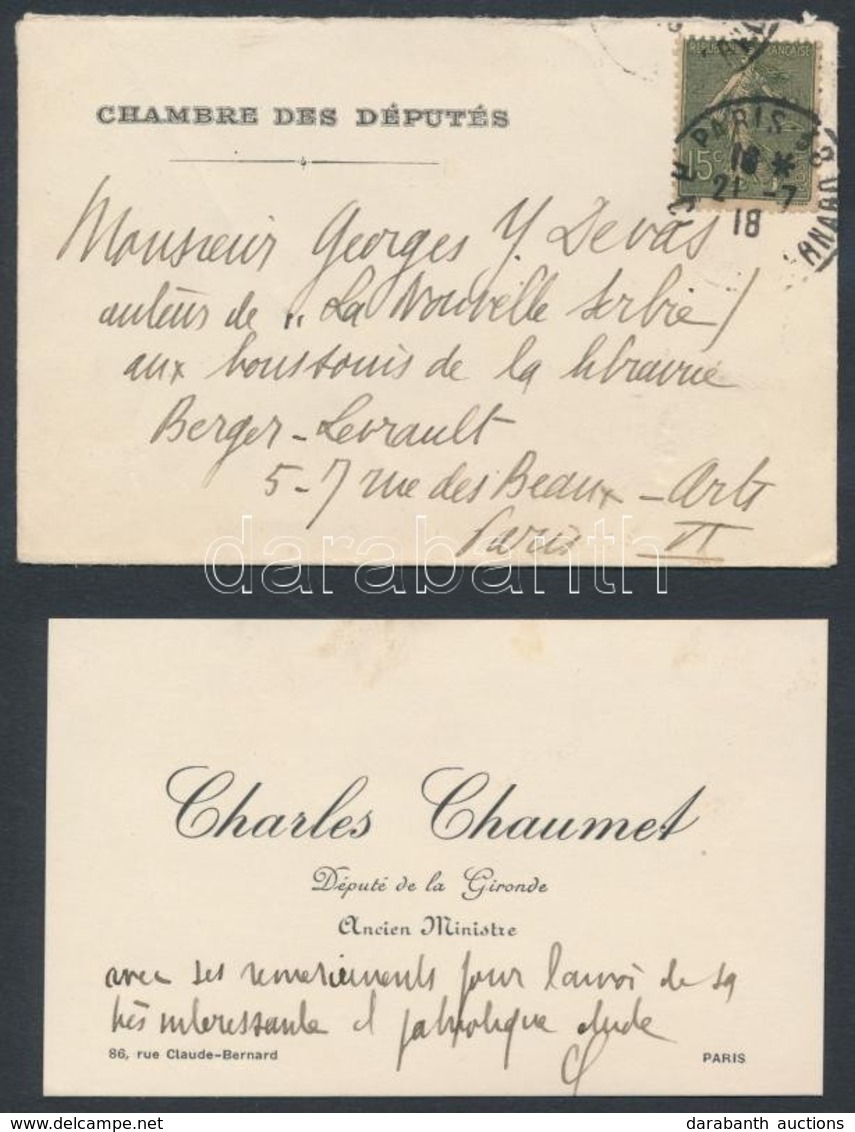 CHAMBRE DES DÉPUTÉS
REPUBLIQUE FRANÇAISE
15c
PARIS
18 *
21 - 7
18
Monsieur Georges Y. Devas
auteur de „La Nouvelle Serbie"
aux bons soins de la librairie
Berger-Levrault
5-7 rue des Beaux-Arts
Paris VI
darabanth
Charles Chaumet
Député de la Gironde
Ancien Ministre
avec ses remerciements pour l'envoi de sa
très intéressante et patriotique étude
86, rue Claude-Bernard
PARIS
delcampe.net
darabanth auctions